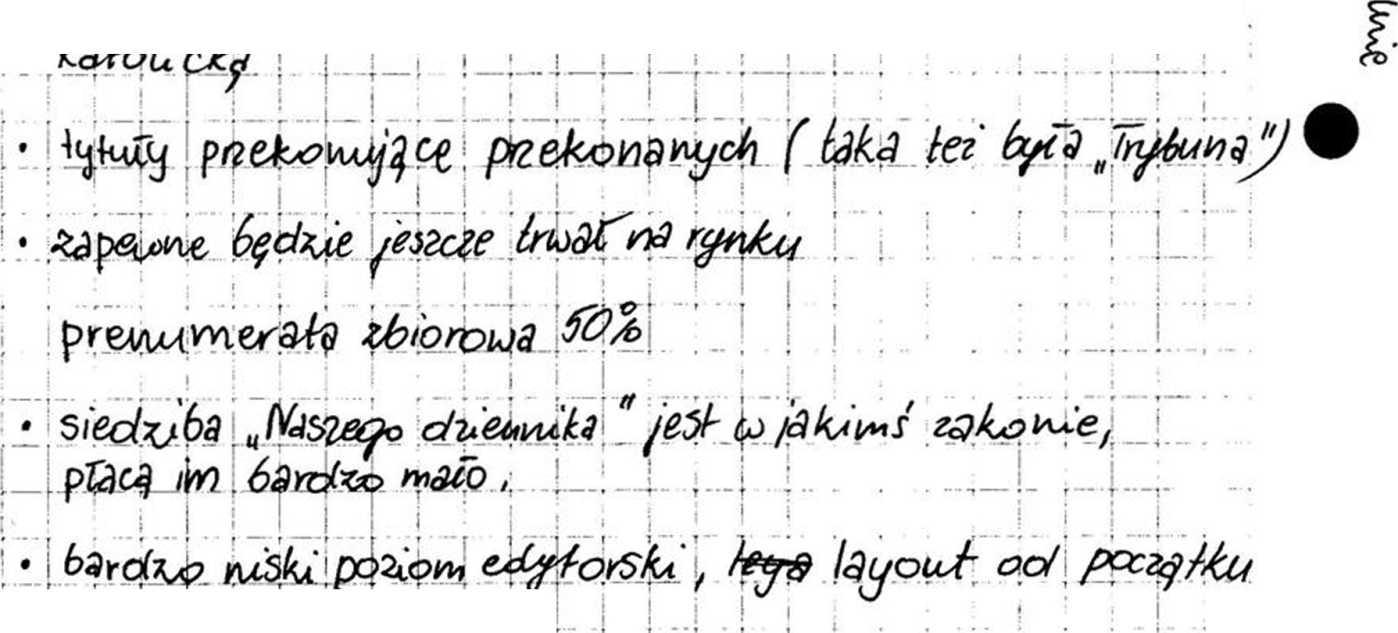 katolicką
• tytuły przekonujące przekonanych (taka też była „Trybuna")
• zapewne będzie jeszcze trwał na rynku
prenumerata zbiorowa 50%
• siedziba „Naszego dziennika" jest w jakimś zakonie,
płacą im bardzo mało.
• bardzo niski poziom edytorski, layout od początku